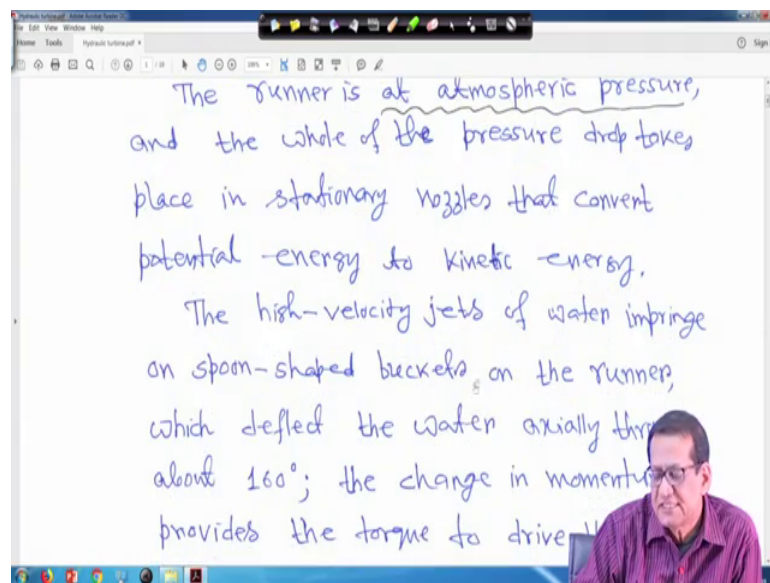 Hydraulic turbine.pdf - Adobe Acrobat Reader DC
File Edit View Window Help
Home Tools Hydraulic turbine.pdf × Sign
The runner is at atmospheric pressure,
and the whole of the pressure drop takes
place in stationary nozzles that convert
potential energy to kinetic energy.
The high-velocity jets of water impringe
on spoon-shaped buckets on the runner,
which deflect the water axially
about 160°; the change in
provides the torque to drive